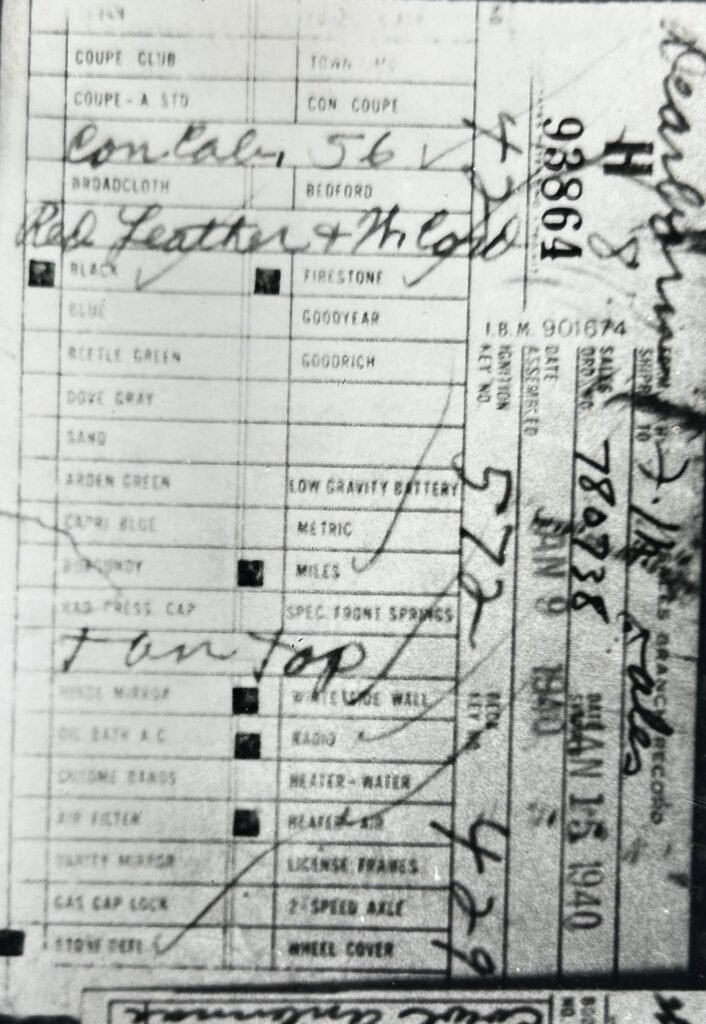 COUPE CLUB
COUPE-A STD CON COUPE
Con Cab. 56 ✓
BROADCLOTH BEDFORD
Red Leather + W. Cord
BLACK FIRESTONE
BLUE GOODYEAR
BEETLE GREEN GOODRICH
DOVE GRAY
SAND
ARDEN GREEN LOW GRAVITY BATTERY
CAPRI BLUE METRIC
BURGUNDY MILES
RAD PRESS CAP SPEC. FRONT SPRINGS
Tan Top
HINGE MIRROR WHITE SIDE WALL
OIL BATH A C RADIO
CHROME BANDS HEATER-WATER
AIR FILTER HEATER-AIR
VANITY MIRROR LICENSE FRAMES
GAS CAP LOCK 2-SPEED AXLE
STONE DEFL. WHEEL COVER
NO
H
93864
8
I.B.M. 901674
IGNITION KEY NO. 572
DECK KEY NO 429
DATE ASSEMBLED JAN 9 1940
SALES ORD. NO. 780738
DATE SHIPPED JAN 15 1940
SHIPPED TO
Dearborn
Sales
SALES BRANCH RECORD